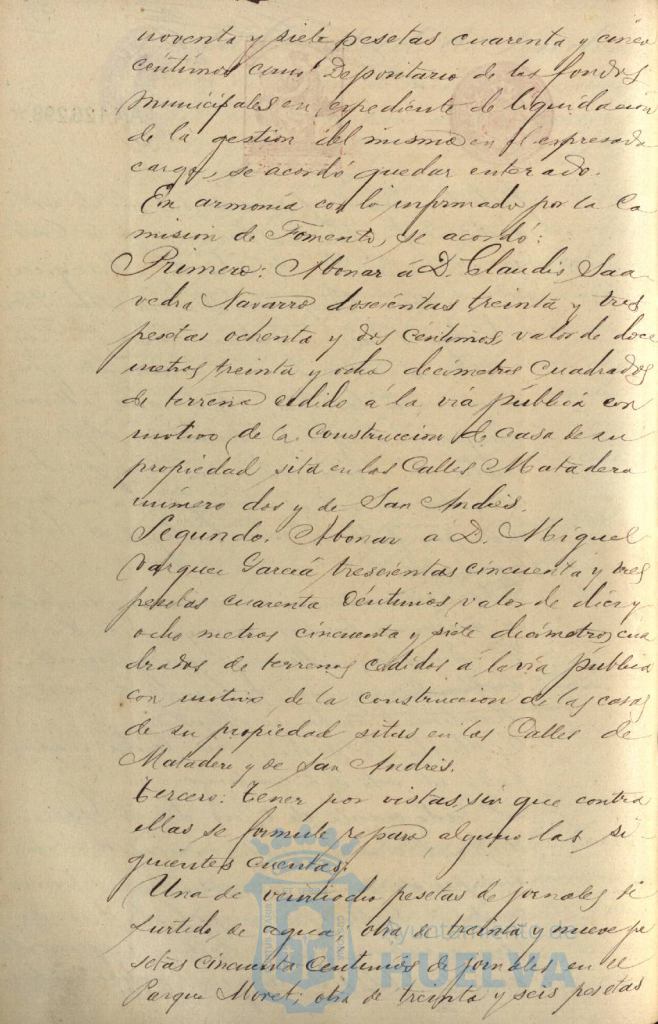 noventa y siete pesetas cuarenta y cinco
céntimos como Depositario de los fondos
municipales en expediente de liquidación
de la gestion del mismo en el expresado
cargo, se acordó quedar enterado.
En armonía con lo informado por la Co
misión de Fomento, se acordó:
Primero: Abonar á D. Claudio Saa
vedra Navarro doscientas treinta y tres
pesetas ochenta y dos céntimos, valor de doce
metros, treinta y ocho decímetros cuadrados
de terreno cedido á la vía pública con
motivo de la construccion de casa de su
propiedad sita en las Calles Matadero
número dos y de San Andrés.
Segundo. Abonar á D. Miguel
Vazquez García trescientas cincuenta y tres
pesetas cuarenta céntimos valor de diez y
ocho metros cincuenta y siete decímetros cua
drados de terrenos cedidos á la vía pública
con motivo de la construccion de las casas
de su propiedad sitas en las Calles de
Matadero y de San Andrés.
Tercero: tener por vistas, sin que contra
ellas se formule reparo alguno las si
guientes cuentas:
Una de veintiocho pesetas de jornales
surtido de agua; otra de treinta y nueve pe
setas cincuenta céntimos de jornales en el
Parque Moret; otra de treinta y seis pesetas
Ayuntamiento de
HUELVA